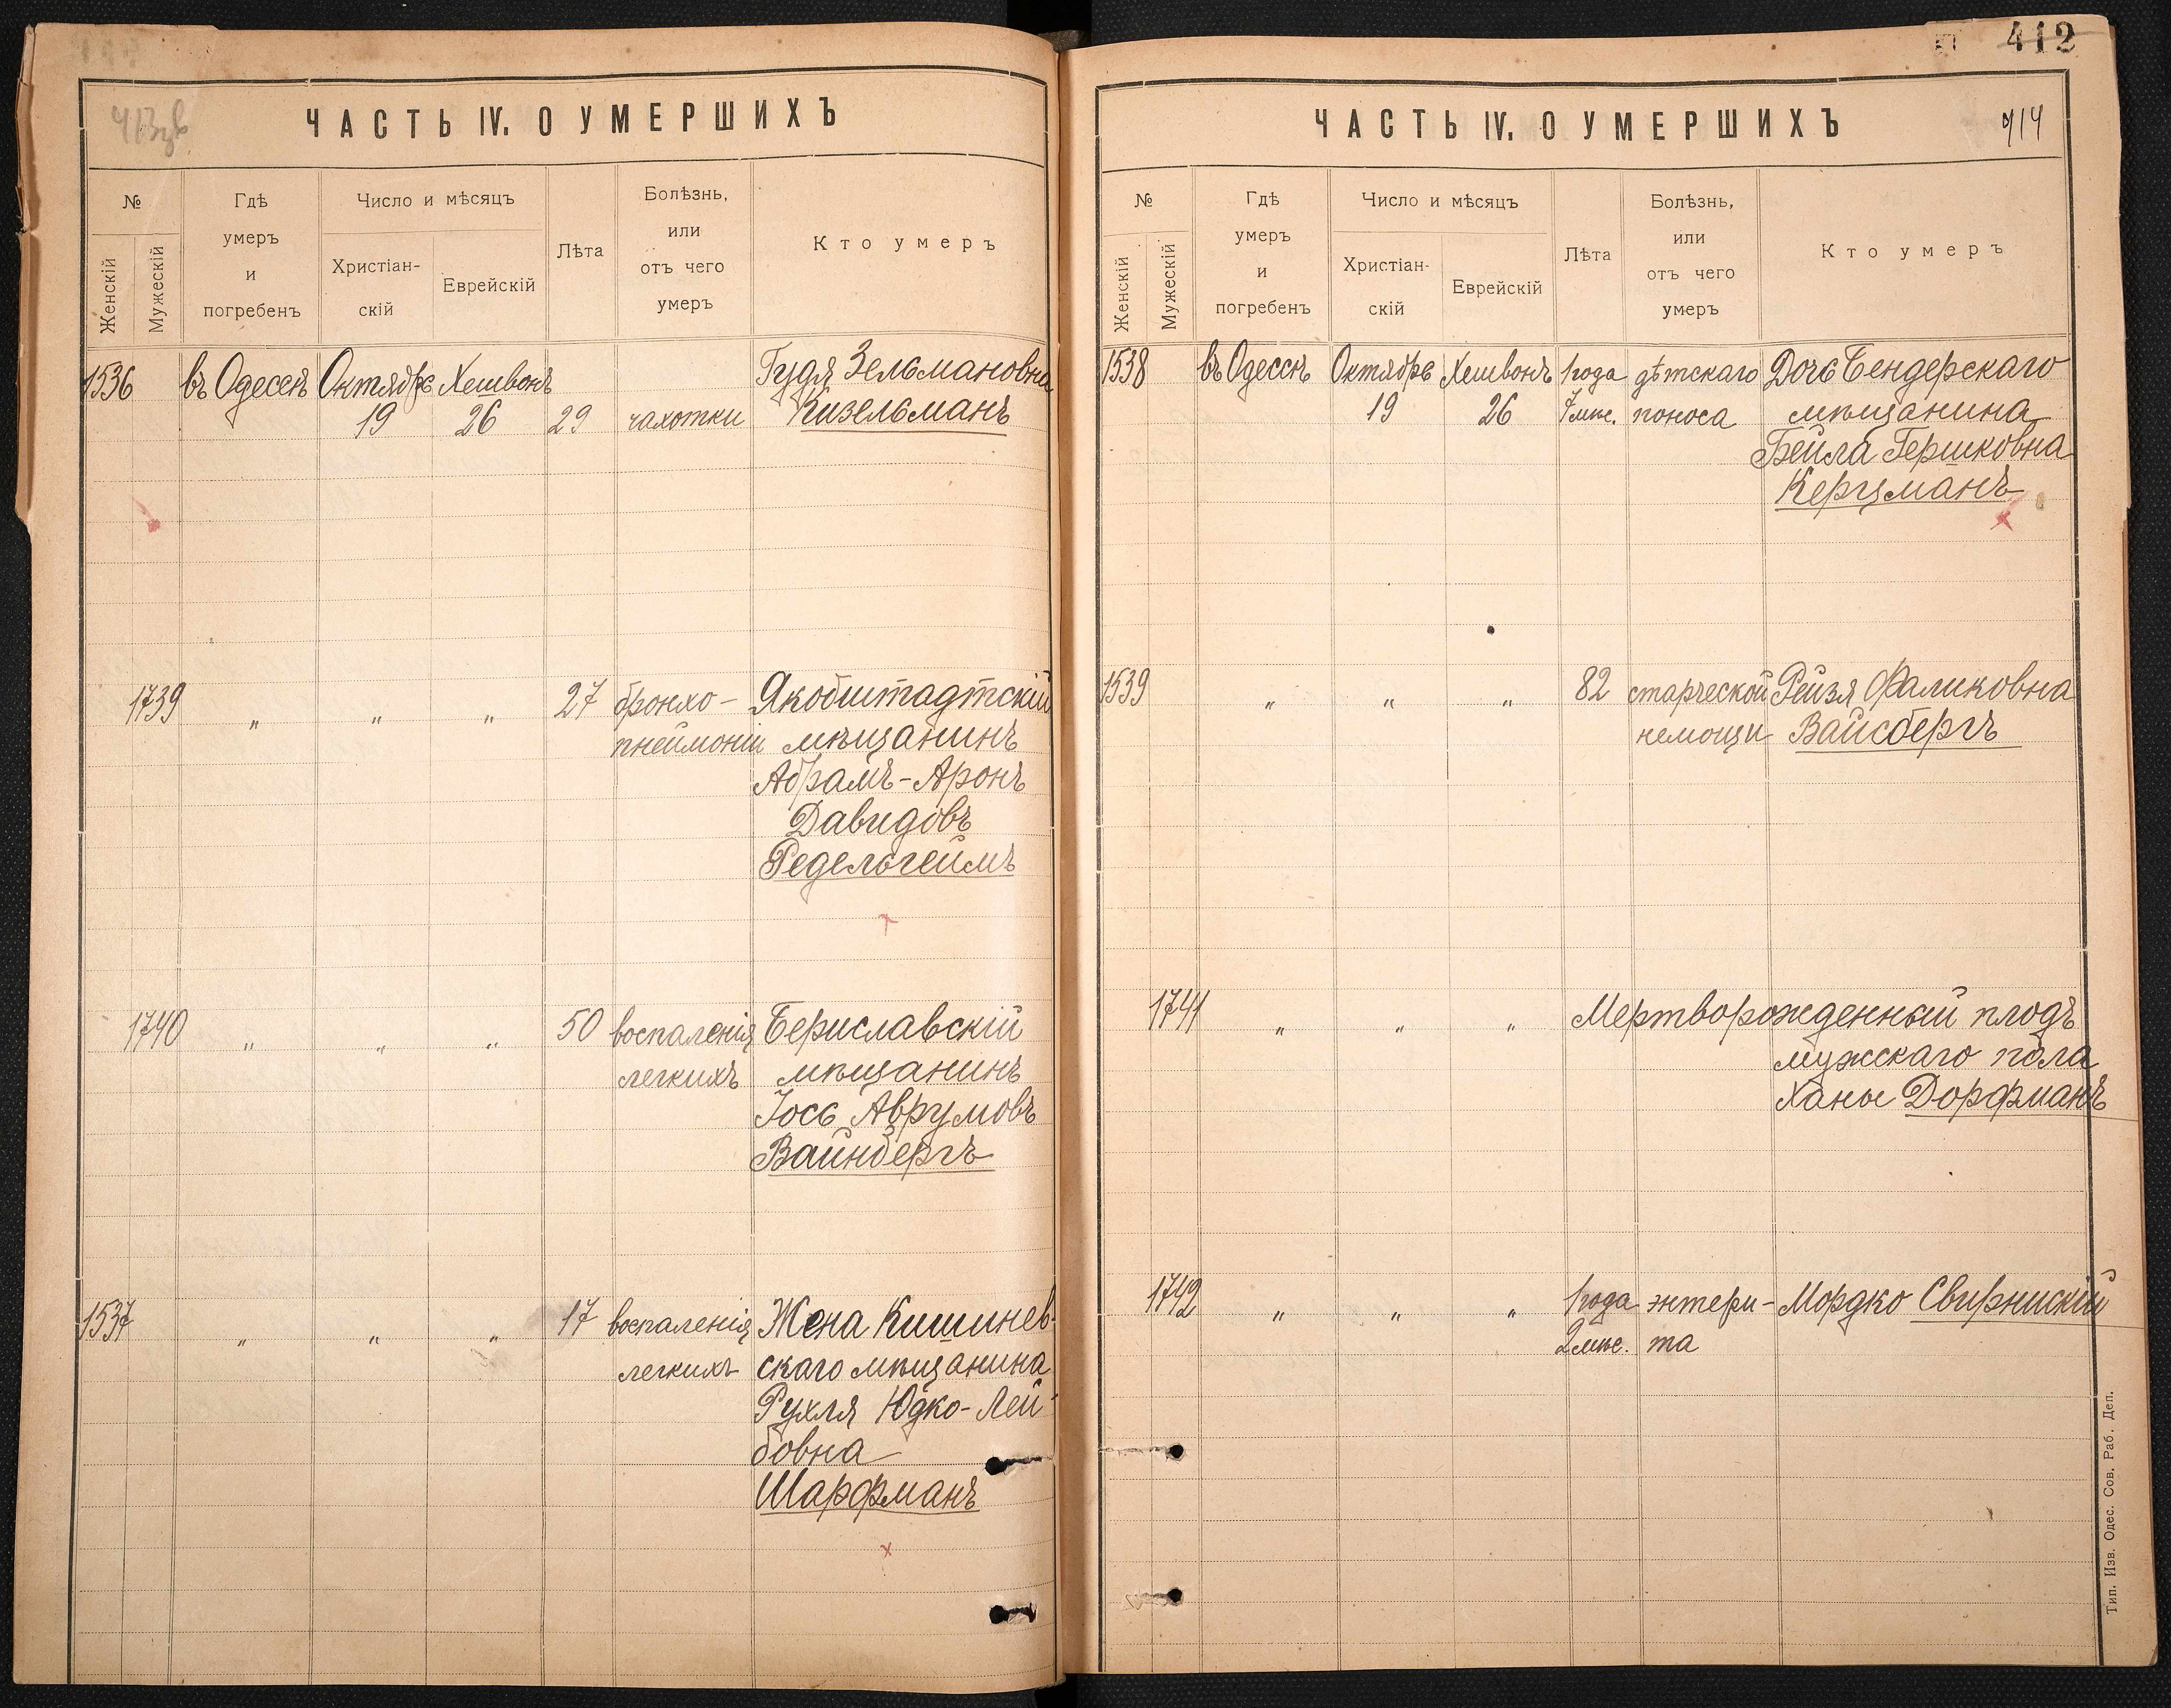 413об
ЧАСТЬ IV. О УМЕРШИХЪ
№
Женскій
Мужескій
Гдѣ
умеръ
и
погребенъ
Число и мѣсяцъ
Христіан-
скій
Еврейскій
Лѣта
Болѣзнь,
или
отъ чего
умеръ
Кто умеръ
1536 въ Одессѣ Октябрь Хешвонъ Гудя Зельмановна
19 26 29 чахотки Кизельманъ
1739 " " " 27 бронхо- Якобштадтскій
пнеймоніи мѣщанинъ
Абрамъ-Аронъ
Давидовъ
Редельгеймъ
1740 " " " 50 воспаленія Бериславскій
легкихъ мѣщанинъ
Іось Аврумовъ
Вайнбергъ
1537 " " " 17 воспаленія Жена Кишинев-
легкихъ скаго мѣщанина
Рухля Юдко-Лей-
бовна
Шарфманъ
412
ЧАСТЬ IV. О УМЕРШИХЪ
414
№
Женскій
Мужескій
Гдѣ
умеръ
и
погребенъ
Число и мѣсяцъ
Христіан-
скій
Еврейскій
Лѣта
Болѣзнь,
или
отъ чего
умеръ
Кто умеръ
1538 въ Одессѣ Октябрь Хешвонъ 1 года дѣтскаго Дочь Бендерскаго
19 26 7 мѣс. поноса мѣщанина
Бейла Гершковна
Керцманъ
1539 " " " 82 старческой Рейзя Фаликовна
немощи Вайсбергъ
1741 " " " Мертворожденный плодъ
мужскаго пола
Ханы Дорфманъ
1742 " " " 1 года энтери- Мордко Свирнискій
2 мѣс. та
Тип. Изв. Одес. Сов. Раб. Деп.